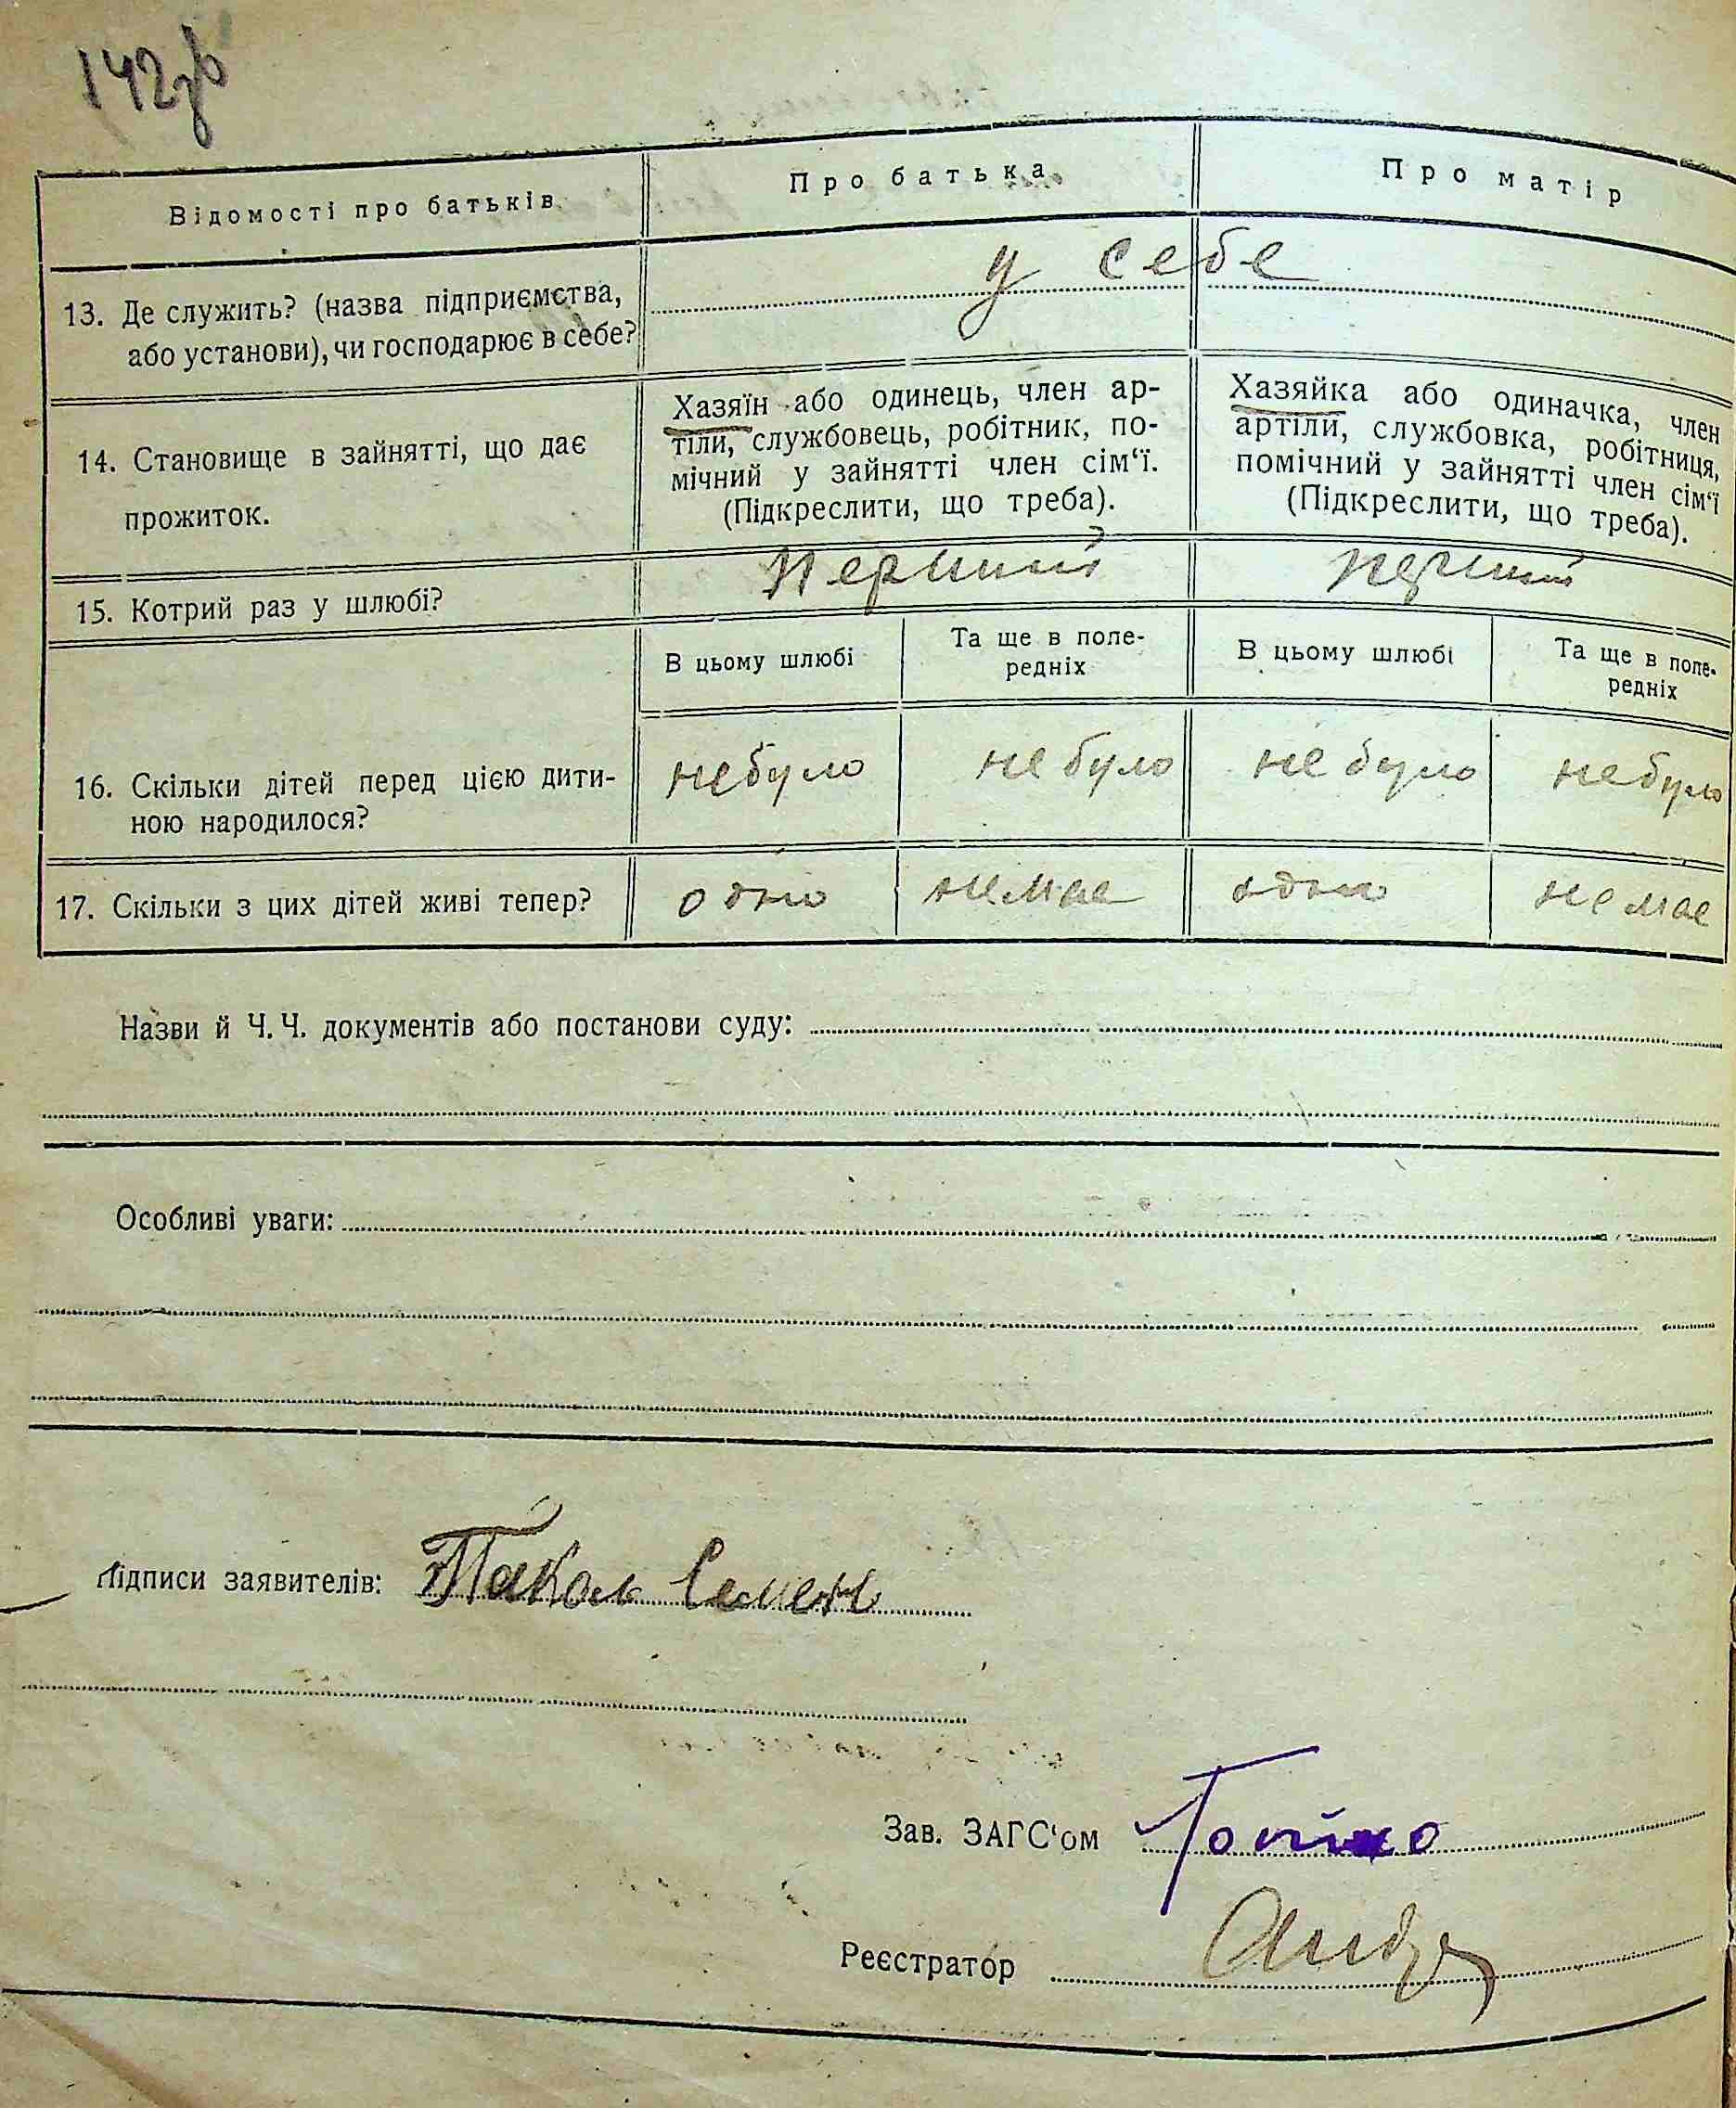 142зв
Відомості про батьків
Про батька
Про матір
13. Де служить? (назва підприємства,
або установи), чи господарює в себе?
у себе
14. Становище в зайнятті, що дає
прожиток.
Хазяїн або одинець, член ар-
тіли, службовець, робітник, по-
мічний у зайнятті член сім‘ї.
(Підкреслити, що треба).
Хазяйка або одиначка, член
артіли, службовка, робітниця,
помічний у зайнятті член сім‘ї
(Підкреслити, що треба).
15. Котрий раз у шлюбі?
перший
перший
В цьому шлюбі
Та ще в попе-
редніх
В цьому шлюбі
Та ще в попе-
редніх
16. Скільки дітей перед цією дити-
ною народилося?
небуло
не було
не було
небуло
17. Скільки з цих дітей живі тепер?
одно
немае
одно
немае
Назви й Ч.Ч. документів або постанови суду:
Особливі уваги:
Підписи заявителів: Семен
Зав. ЗАГС‘ом
Реєстратор